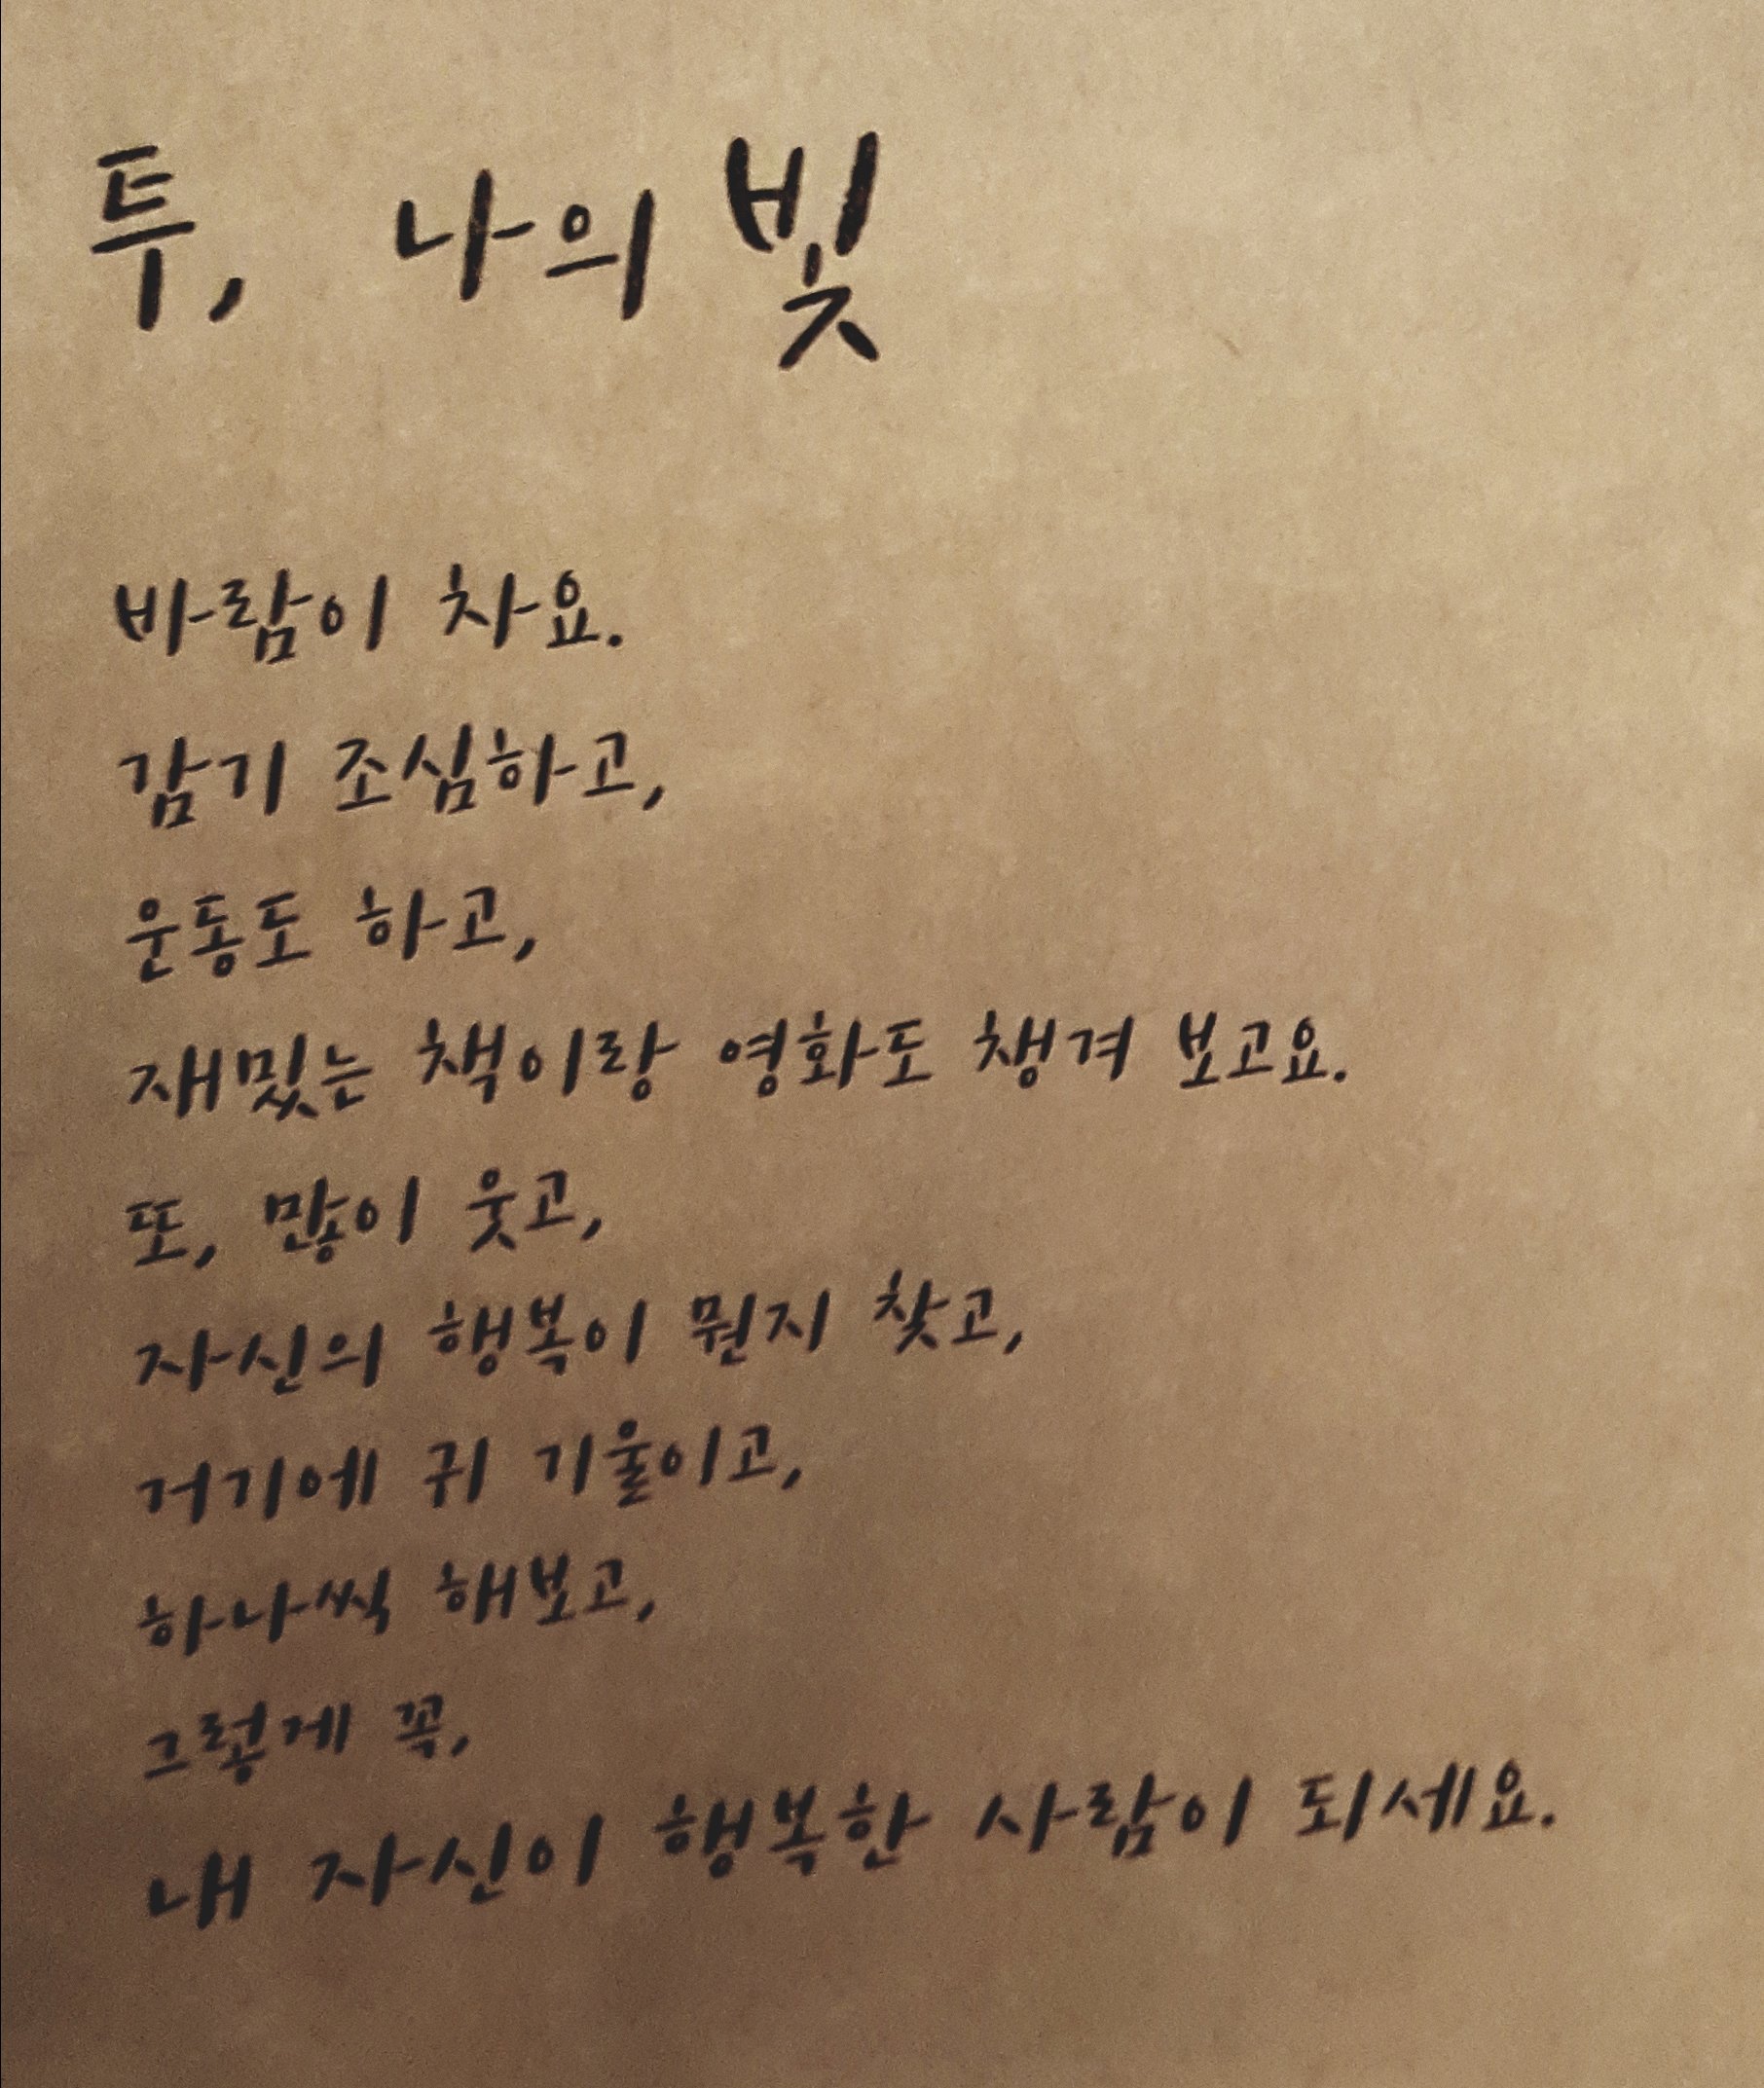 투, 나의 빛
바람이 차요.
감기 조심하고,
운동도 하고,
재밌는 책이랑 영화도 챙겨 보고요.
또, 많이 웃고,
자신의 행복이 뭔지 찾고,
거기에 귀 기울이고,
하나씩 해보고,
그렇게 꼭,
내 자신이 행복한 사람이 되세요.